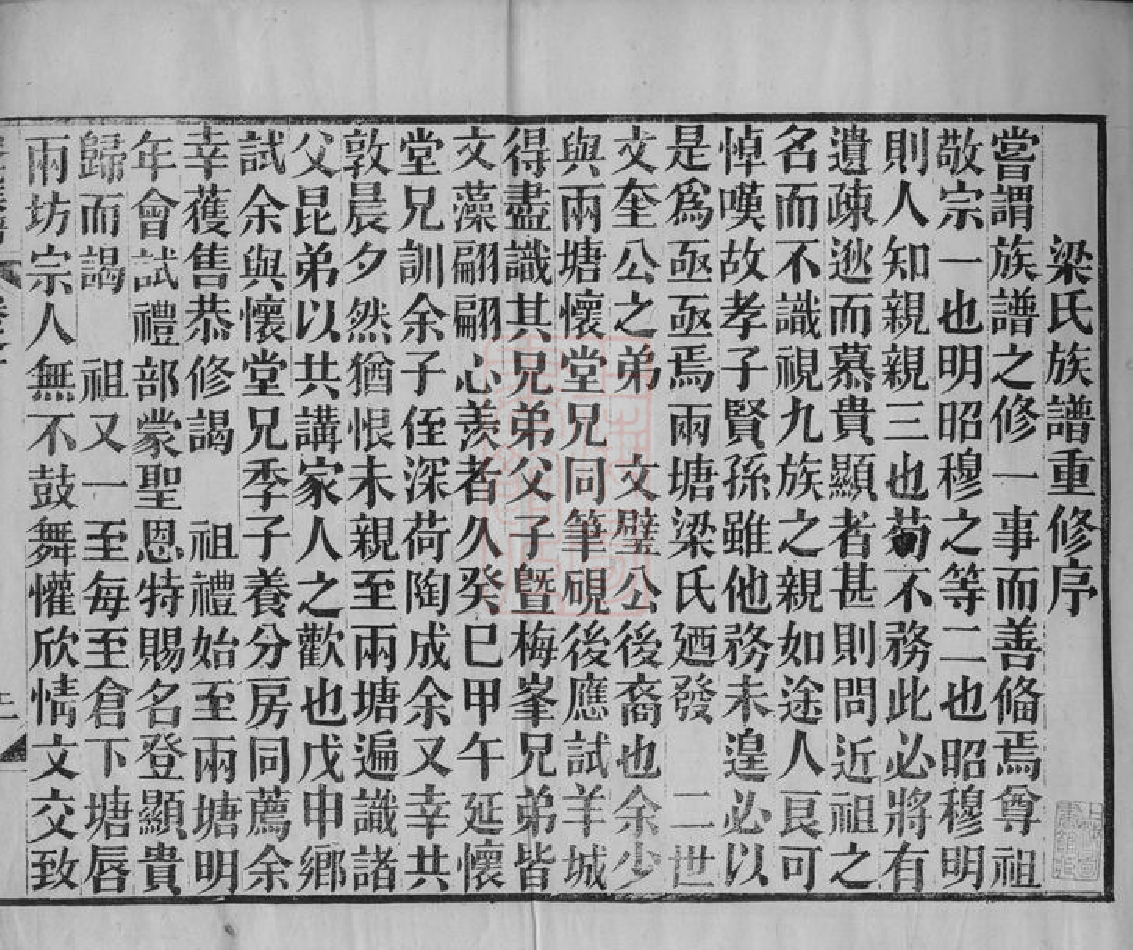 梁氏族譜重修序
嘗謂族譜之修一事而善備焉尊祖
敬宗一也明昭穆之等二也昭穆明
則人知親親三也苟不務此必將有
遺疎逖而慕貴顯者甚則問近祖之
名而不識視九族之親如途人良可
悼嘆故孝子賢孫雖他務未遑必以
是爲亟亟焉兩塘梁氏廼發　二世
文奎公之弟　文璧公後裔也余少
與兩塘懷堂兄同筆硯後應試羊城
得盡識其兄弟父子曁梅峯兄弟皆
文藻翩翩心羨者久癸巳甲午延懷
堂兄訓余子侄深荷陶成余又幸共
敦晨夕然猶恨未親至兩塘遍識諸
父昆弟以共講家人之歡也戊申鄉
試余與懷堂兄季子養分房同薦余
幸獲售恭修謁　祖禮始至兩塘明
年會試禮部蒙聖恩特賜名登顯貴
歸而謁　祖又一至每至倉下塘唇
兩坊宗人無不鼓舞懽欣情文交致